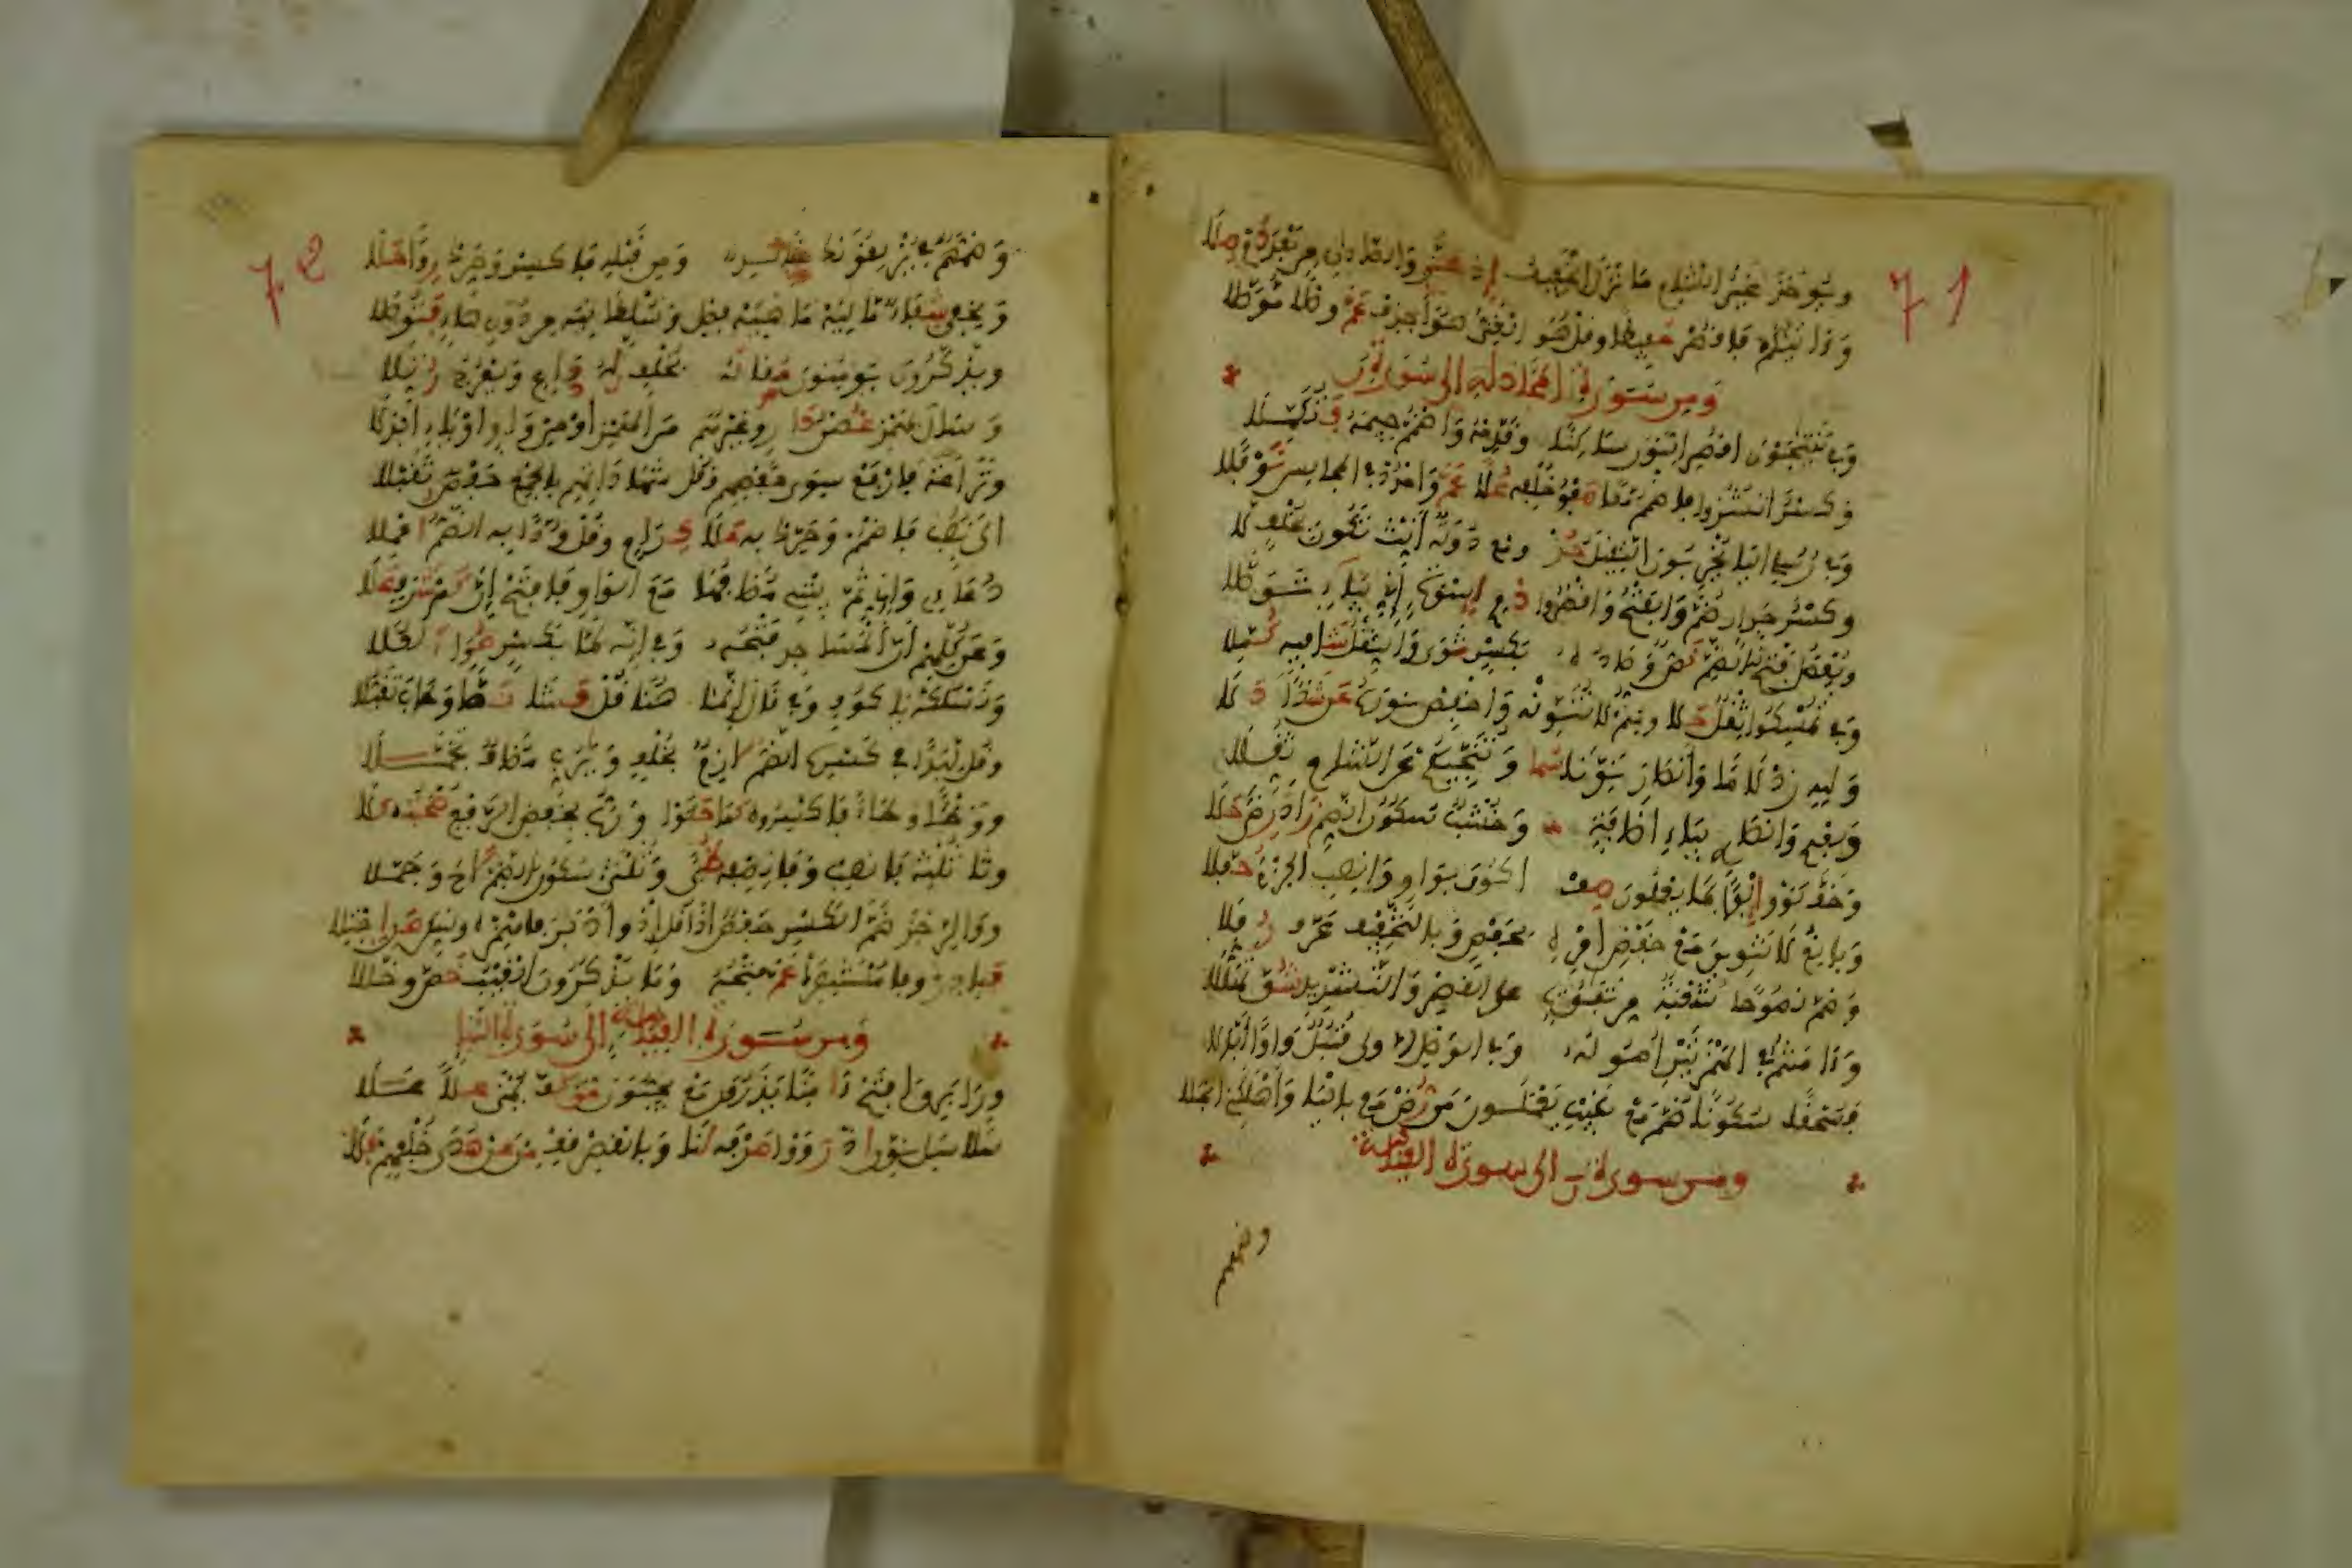 71
ويؤخذ غير الشام ما نزل الخفيف إذ عز والصادان من بعد دم صلا
وءاتيكم فاقصر حفيظا وقل هو الغني هو احذف عم وصلا موصلا
ومن سورة المجادلة إلى سورة ن
وفي يتنجون اقصر النون ساكنا وقدمه واضمم جيمه فتكملا
وكسر انشزوا فاضمم معا صفو خلفه علا عم وامدد في المجالس نوفلا
وفي رسلي اليا يخربون الثقيل حز ومع دولة أنث تكون بخلف لا
وكسر جدار ضم والفتح واقصروا ذوي إسوة إني بياء توصلا
ويفصل فتح الضم نص وصاده بكسر ثوى والثقل شافيه كملا
وفي تمسكوا ثقل حلا ومتم لا تنونه واخفض نوره عن شذا دلا
ولله زد لاما وأنصار نونا سما وتنجيكم عن الشام ثقلا
وبعدي وأنصاري بياء إضافة وخشب سكون الضم زاد رضى حلا
وخف لووا إلفا بما يعملون صف أكون بواو وانصب الجزم حفلا
وبالغ لا تنوين مع خفض أمره لحفص وبالتخفيف عرف رفلا
وضم نصوحا شعبة من تفوت على القصر والتشديد شق تهللا
وءامنتم في الهمزتين أصوله وفي الوصل الاولى قنبل واوا ابدلا
فسحقا سكونا ضم مع غيب يعلمون من رض معي باليا وأهلكني انجلا
ومن سورة ن إلى سورة القيمة
وضمهم
72
وضمهم في يزلقونك خالد ومن قبله فاكسر وحرك روا حلا
ويخفى شفاء ماليه ماهيه فصل وسلطانيه من دون هاء فتوصلا
ويذكرون يومنون مقاله بخلف له داع ويعرج رتلا
وسال بهمز غصن دان وغيرهم من الهمز أو من واو او ياء ابدلا
ونزاعة فارفع سوى حفصهم وقل شهاداتهم بالجمع حفص تقبلا
الى نصب فاضمم وحرك به علا كرام وقل ودا به الضم اعملا
دعاءي وإني ثم بيتي مضافها مع الواو فافتح إن كم شرفا علا
وعن كلهم أن المساجد فتحه وفي إنه لما بكسر صوا العلا
ونسلكه يا كوف وفي قال إنما هنا قل فشا نصا وطاب تقبلا
وقل لبدا في كسره الضم لازم بخلف ويا ربي مضاف تجملا
ووطئا وطاء فاكسروه كما حكوا ورب بخفض الرفع صحبته كلا
وثا ثلثه فانصب وفا نصفه ظبى وثلثي سكون الضم لاح وجملا
ووالرجز ضم الكسر حفص إذا قل إذ وأدبر فاهمزه وسكن عن اجتلا
فبادر وفا مستنفره عم فتحه وما يذكرون الغيب خص وخللا
ومن سورة القيمة إلى سورة النبإ
ورا برق افتح ءامنا يذرون مع يحبون حق كف يمنى علا علا
سلاسل نون إذ رووا صرفه لنا وبالقصر قف من عن هدى خلفهم فلا